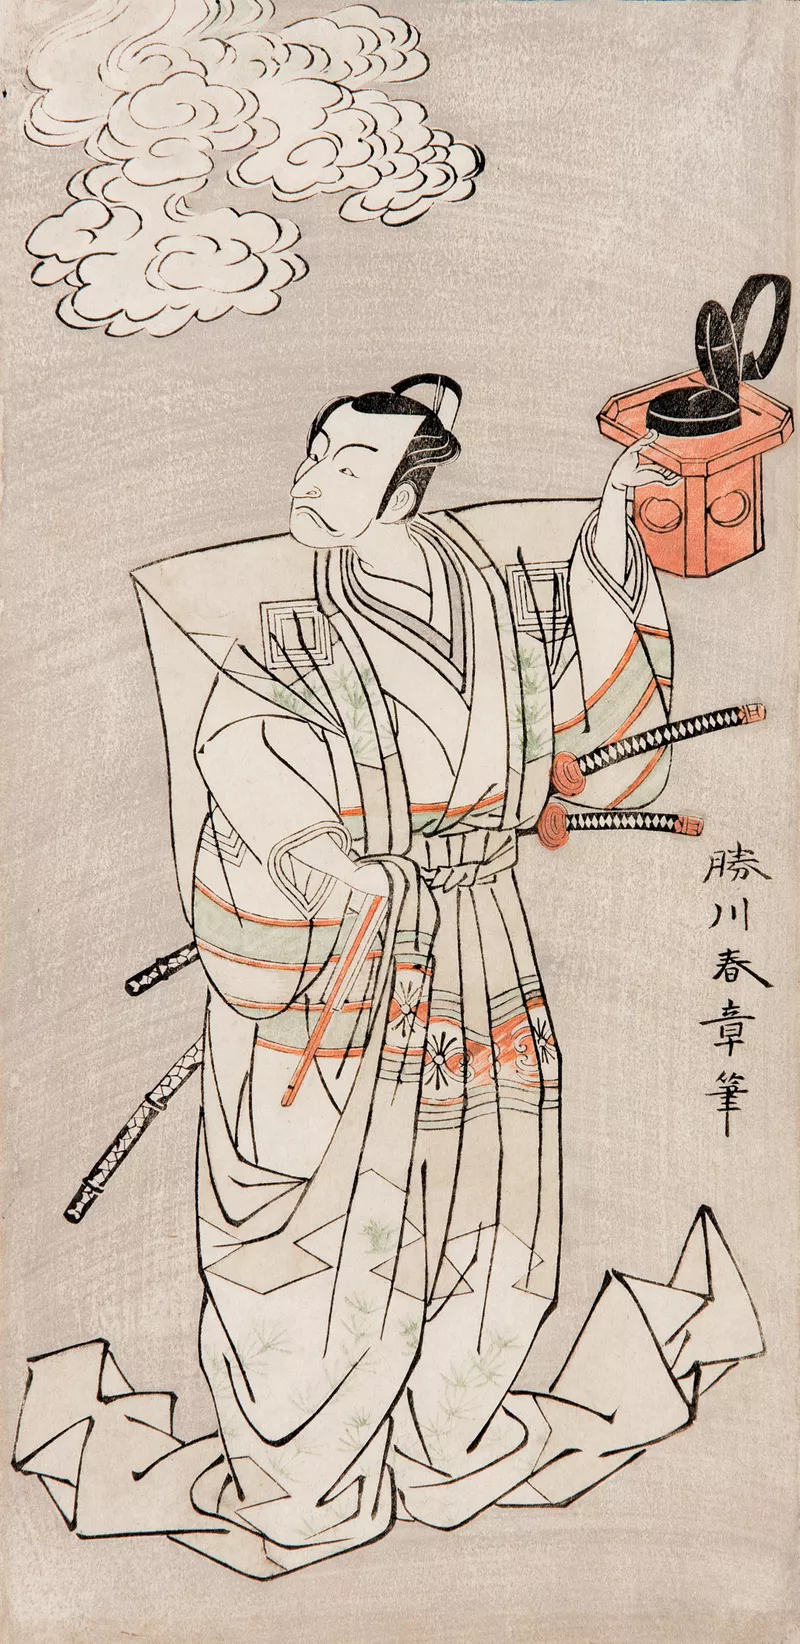 勝川春章筆